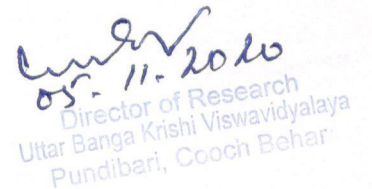 05.11.2020
Director of Research
Uttar Banga Krishi Viswavidyalaya
Pundibari, Cooch Behar